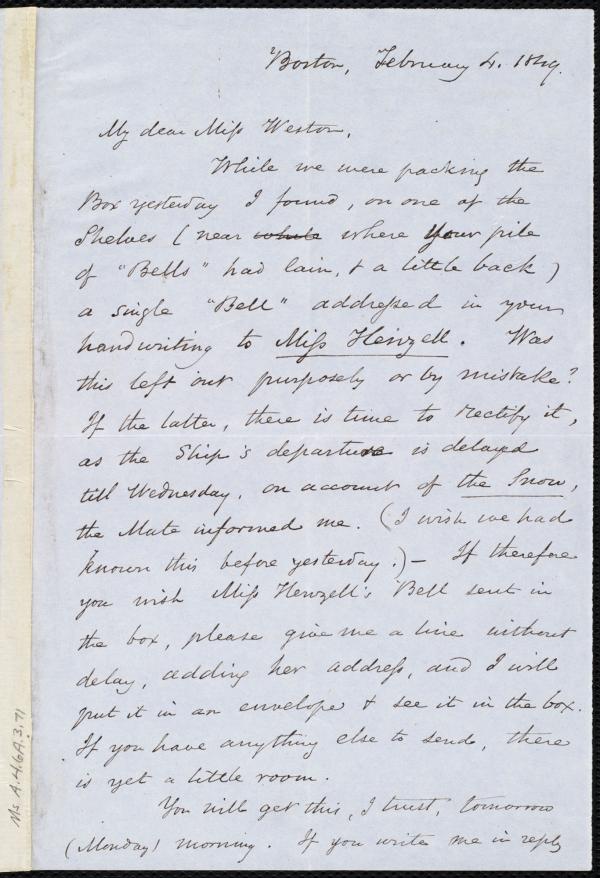 Boston, February 4. 1849.
My dear Miss Weston,
While we were packing the
Box yesterday I found, on one of the
Shelves (near where your pile
of "Bells" had lain, & a little back)
a single "Bell" addressed in your
handwriting to Miss Henzell. Was
this left out purposely or by mistake?
If the latter, there is time to rectify it,
as the Ship's departure is delayed
till Wednesday, on account of the Snow,
the Mate informed me. (I wish we had
known this before yesterday.) — If therefore
you wish Miss Henzell's Bell sent in
the box, please give me a line without
delay, adding her address, and I will
put it in an envelope & see it in the box.
If you have anything else to send, there
is yet a little room.
You will get this, I trust, tomorrow
(Monday) morning. If you write me in reply
Ms A.4.6A.3.71